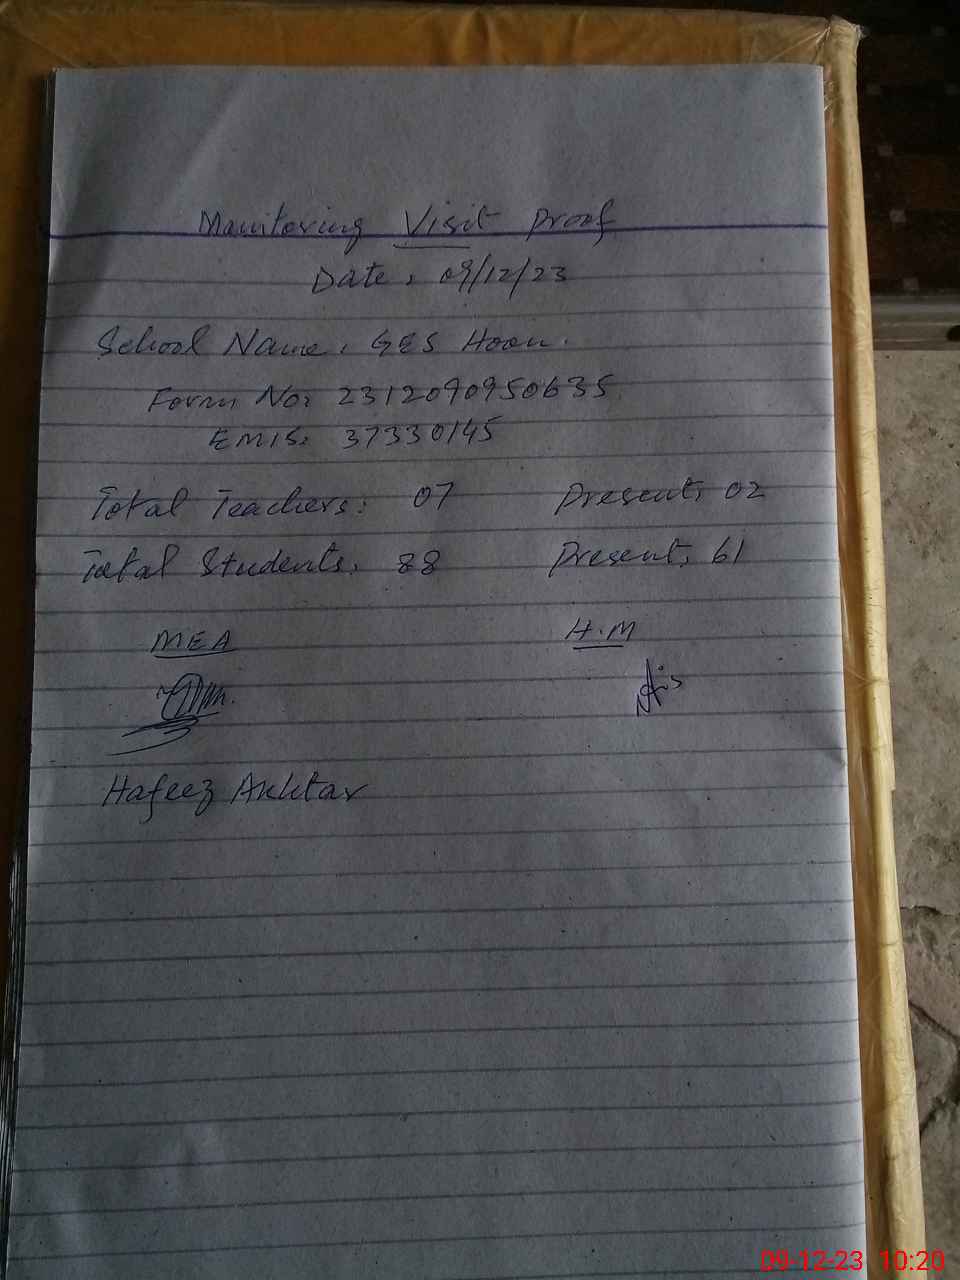 Monitoring Visit Proof
Date: 09/12/23
School Name: GES Hoon.
Form No: 2312090950635
EMIS: 37330145
Total Teachers: 07 Present: 02
Total Students: 88 Present: 61
MEA H.M
Hafeez Akhtar
09-12-23 10:20